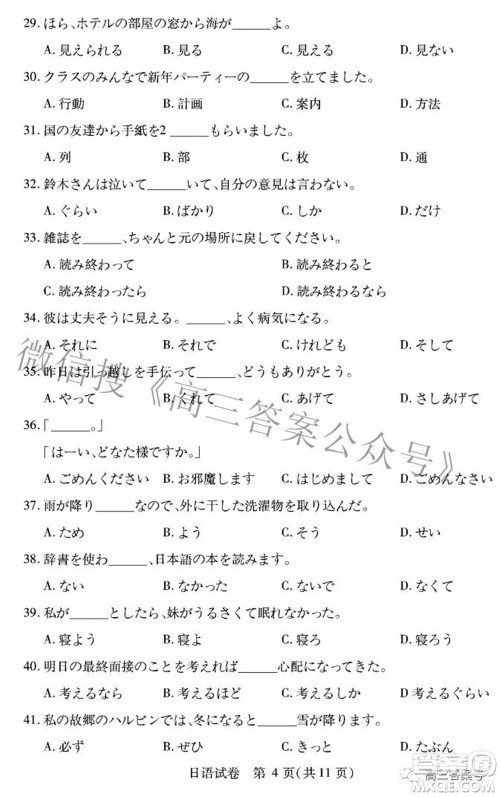 29. ほら、ホテルの部屋の窓から海が______よ。
A. 見えられる B. 見る C. 見える D. 見られる
30. クラスのみんなで新年パーティーの______を立てました。
A. 行動 B. 計画 C. 案内 D. 方法
31. 国の友達から手紙を2 ______もらいました。
A. 列 B. 部 C. 枚 D. 通
32. 鈴木さんは泣いて______いて、自分の意見は言わない。
A. ぐらい B. ばかり C. しか D. だけ
33. 雑誌を______、ちゃんと元の場所に戻してください。
A. 読み終わって B. 読み終わると
C. 読み終わったら D. 読み終わるなら
34. 彼は丈夫そうに見える。______、よく病気になる。
A. それに B. それで C. けれども D. そして
35. 昨日は引っ越しを手伝って______、どうもありがとう。
A. やって B. くれて C. あげて D. さしあげて
36. 「______。」
「はーい、どなた様ですか。」
A. ごめんください B. お邪魔します C. はじめまして D. ごめんなさい
37. 雨が降り______なので、外に干した洗濯物を取り込んだ。
A. ため B. よう C. そう D. せい
38. 辞書を使わ______、日本語の本を読みます。
A. ない B. なかった C. ないで D. なくて
39. 私が______としたら、妹がうるさくて眠れなかった。
A. 寝よう B. 寝おう C. 寝ろ D. 寝ろう
40. 明日の最終面接のことを考えれば______心配になってきた。
A. 考えるなら B. 考えるほど C. 考えるしか D. 考えるぐらい
41. 私の故郷のハルビンでは、冬になると______雪が降ります。
A. 必ず B. ぜひ C. きっと D. たぶん
日语试卷 第 4 页(共 11 页)
微信搜《高三答案公众号》
高三答案号
答案圈
MXQE.COM